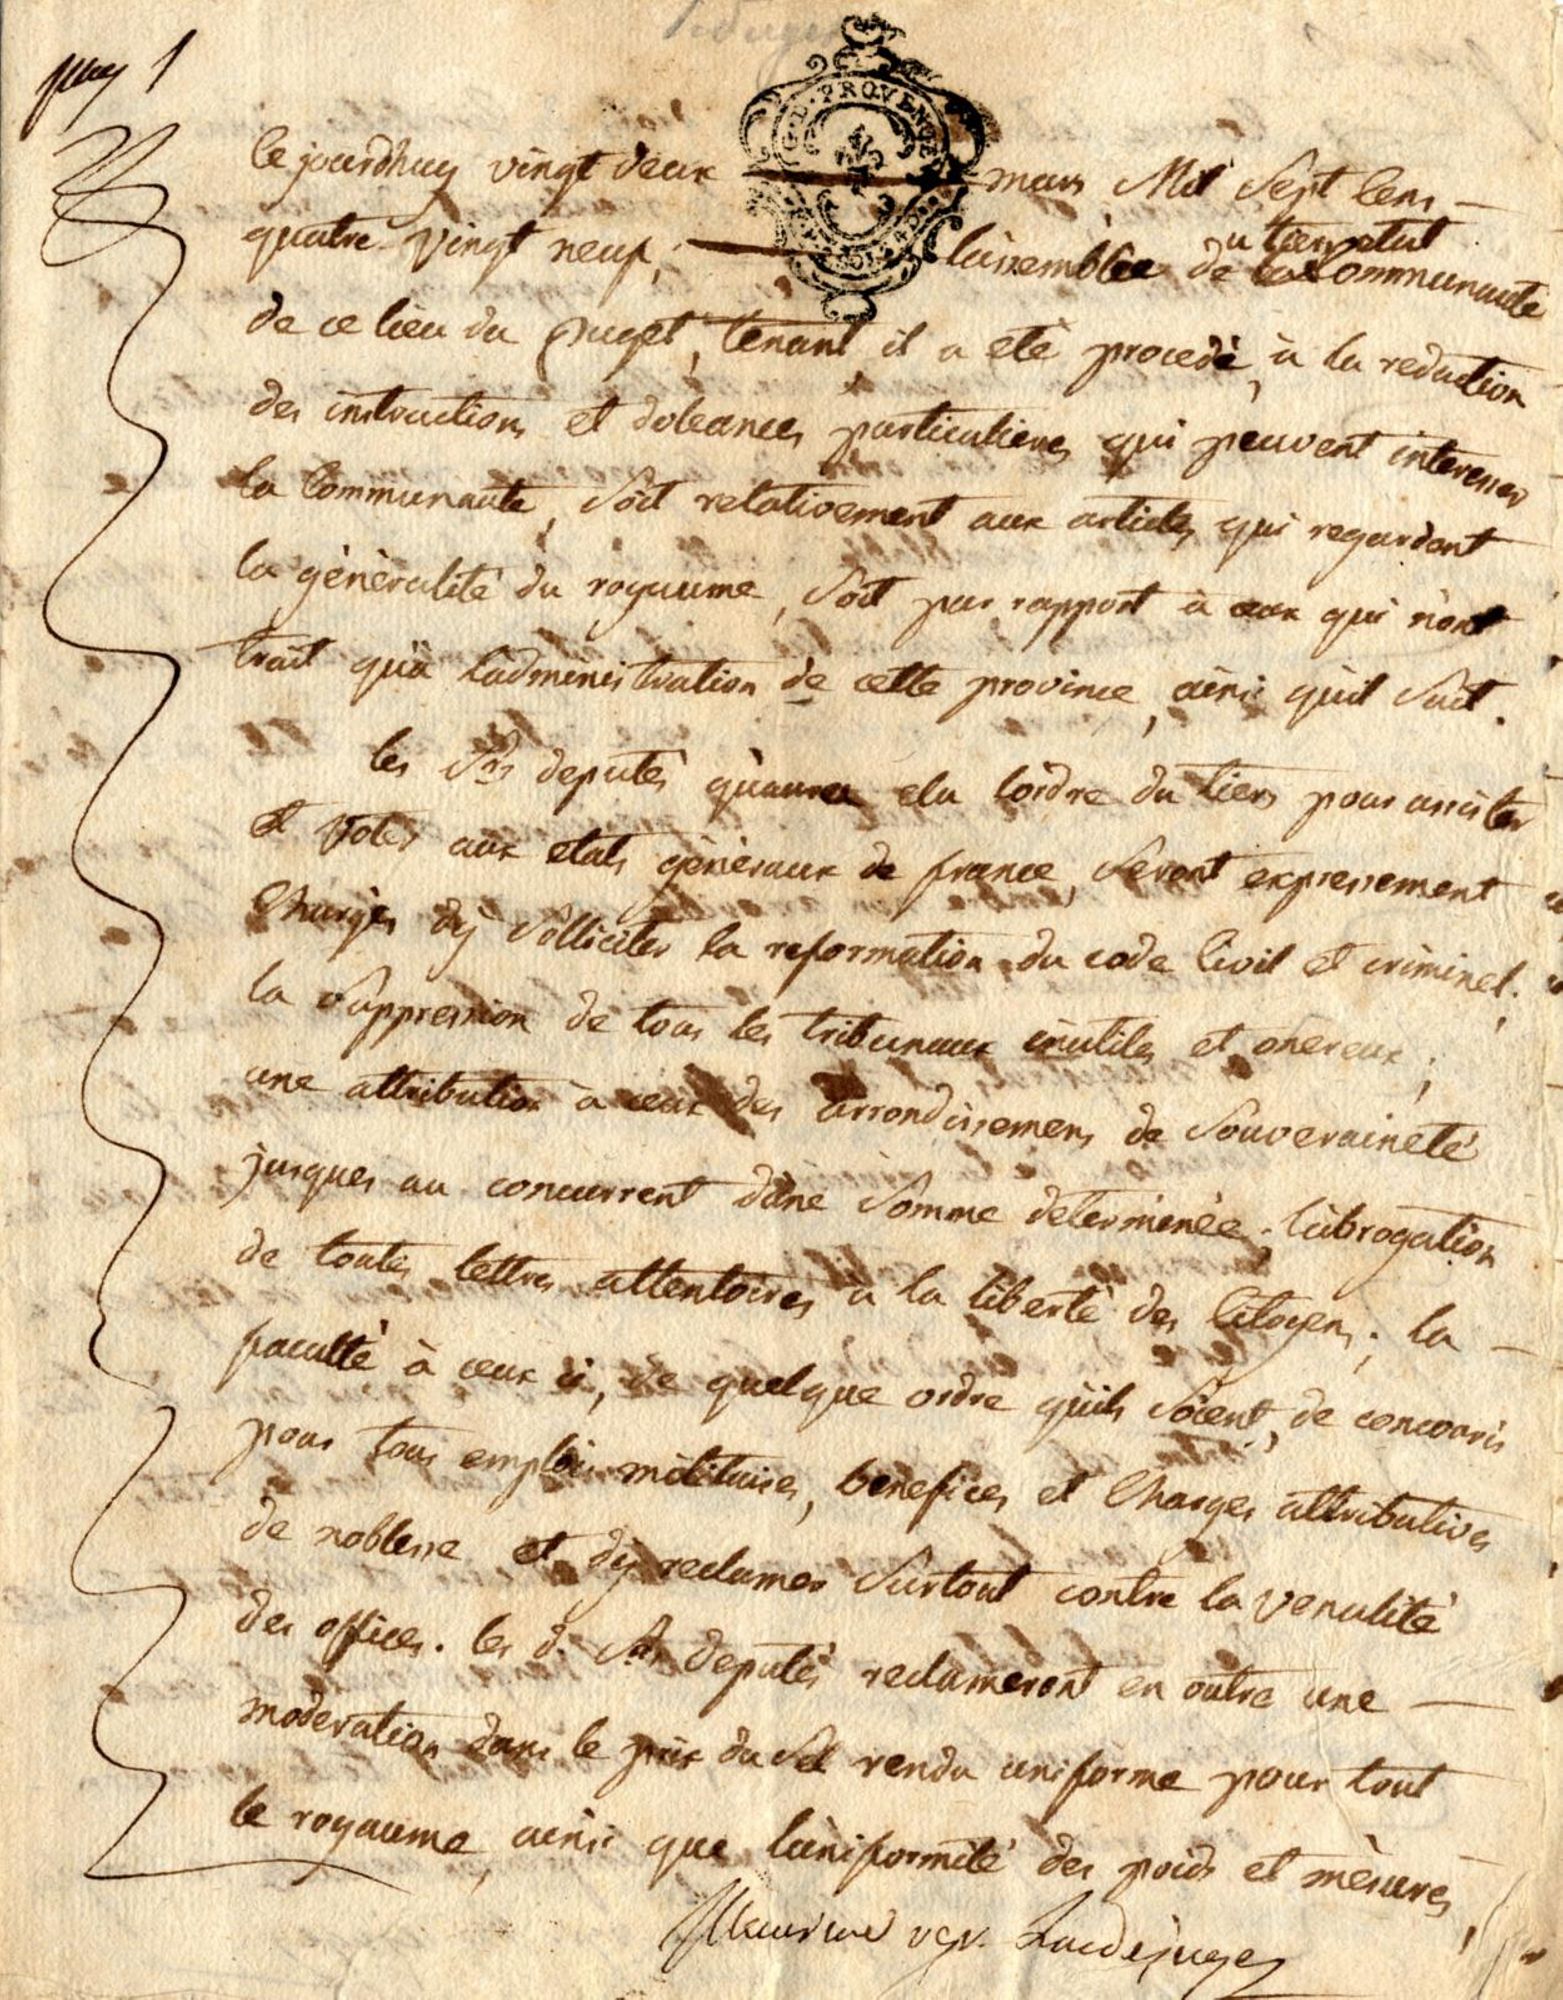 pag 1
G.D. PROVENCE
le jourdhuy vingt deux mars Mil Sept Cens
quatre vingt neuf, l'assemblée du tiers etat
de la Communauté
de ce lieu du puget, tenant il a eté procedé, à la redaction
des instructions et doleances particulieres qui peuvent interesser
la Communauté, soit relativement aux articles qui regardent
la généralité du royaume, soit par rapport à ceux qui n'ont
trait qu'à l'administration de cette province, ainsi qu'il suit.
les Srs deputés qu'aura elu l'ordre du tiers pour assister
et voter aux etats généraux de france, seront expressement
Chargés d'y solliciter la reformation du code Civil et criminel;
la suppression de tous les tribunaux inutiles et onereux;
une attribution à ceux des arrondissemens de souveraineté
jusques au concurrent d'une somme determinée; l'abrogation
de toutes lettres attentoires à la liberté des Citoyens; la
faculté à ceux ci, de quelque ordre qu'ils soient, de concourir
pour tous emplois militaires, benefices et Charges attributives
de noblesse et d'y reclamer surtout contre la venalité
des offices. les d. Srs deputés reclameront en outre une
moderation dans le prix du sel rendu uniforme pour tout
le royaume, ainsi que l'uniformité des poids et mésures,